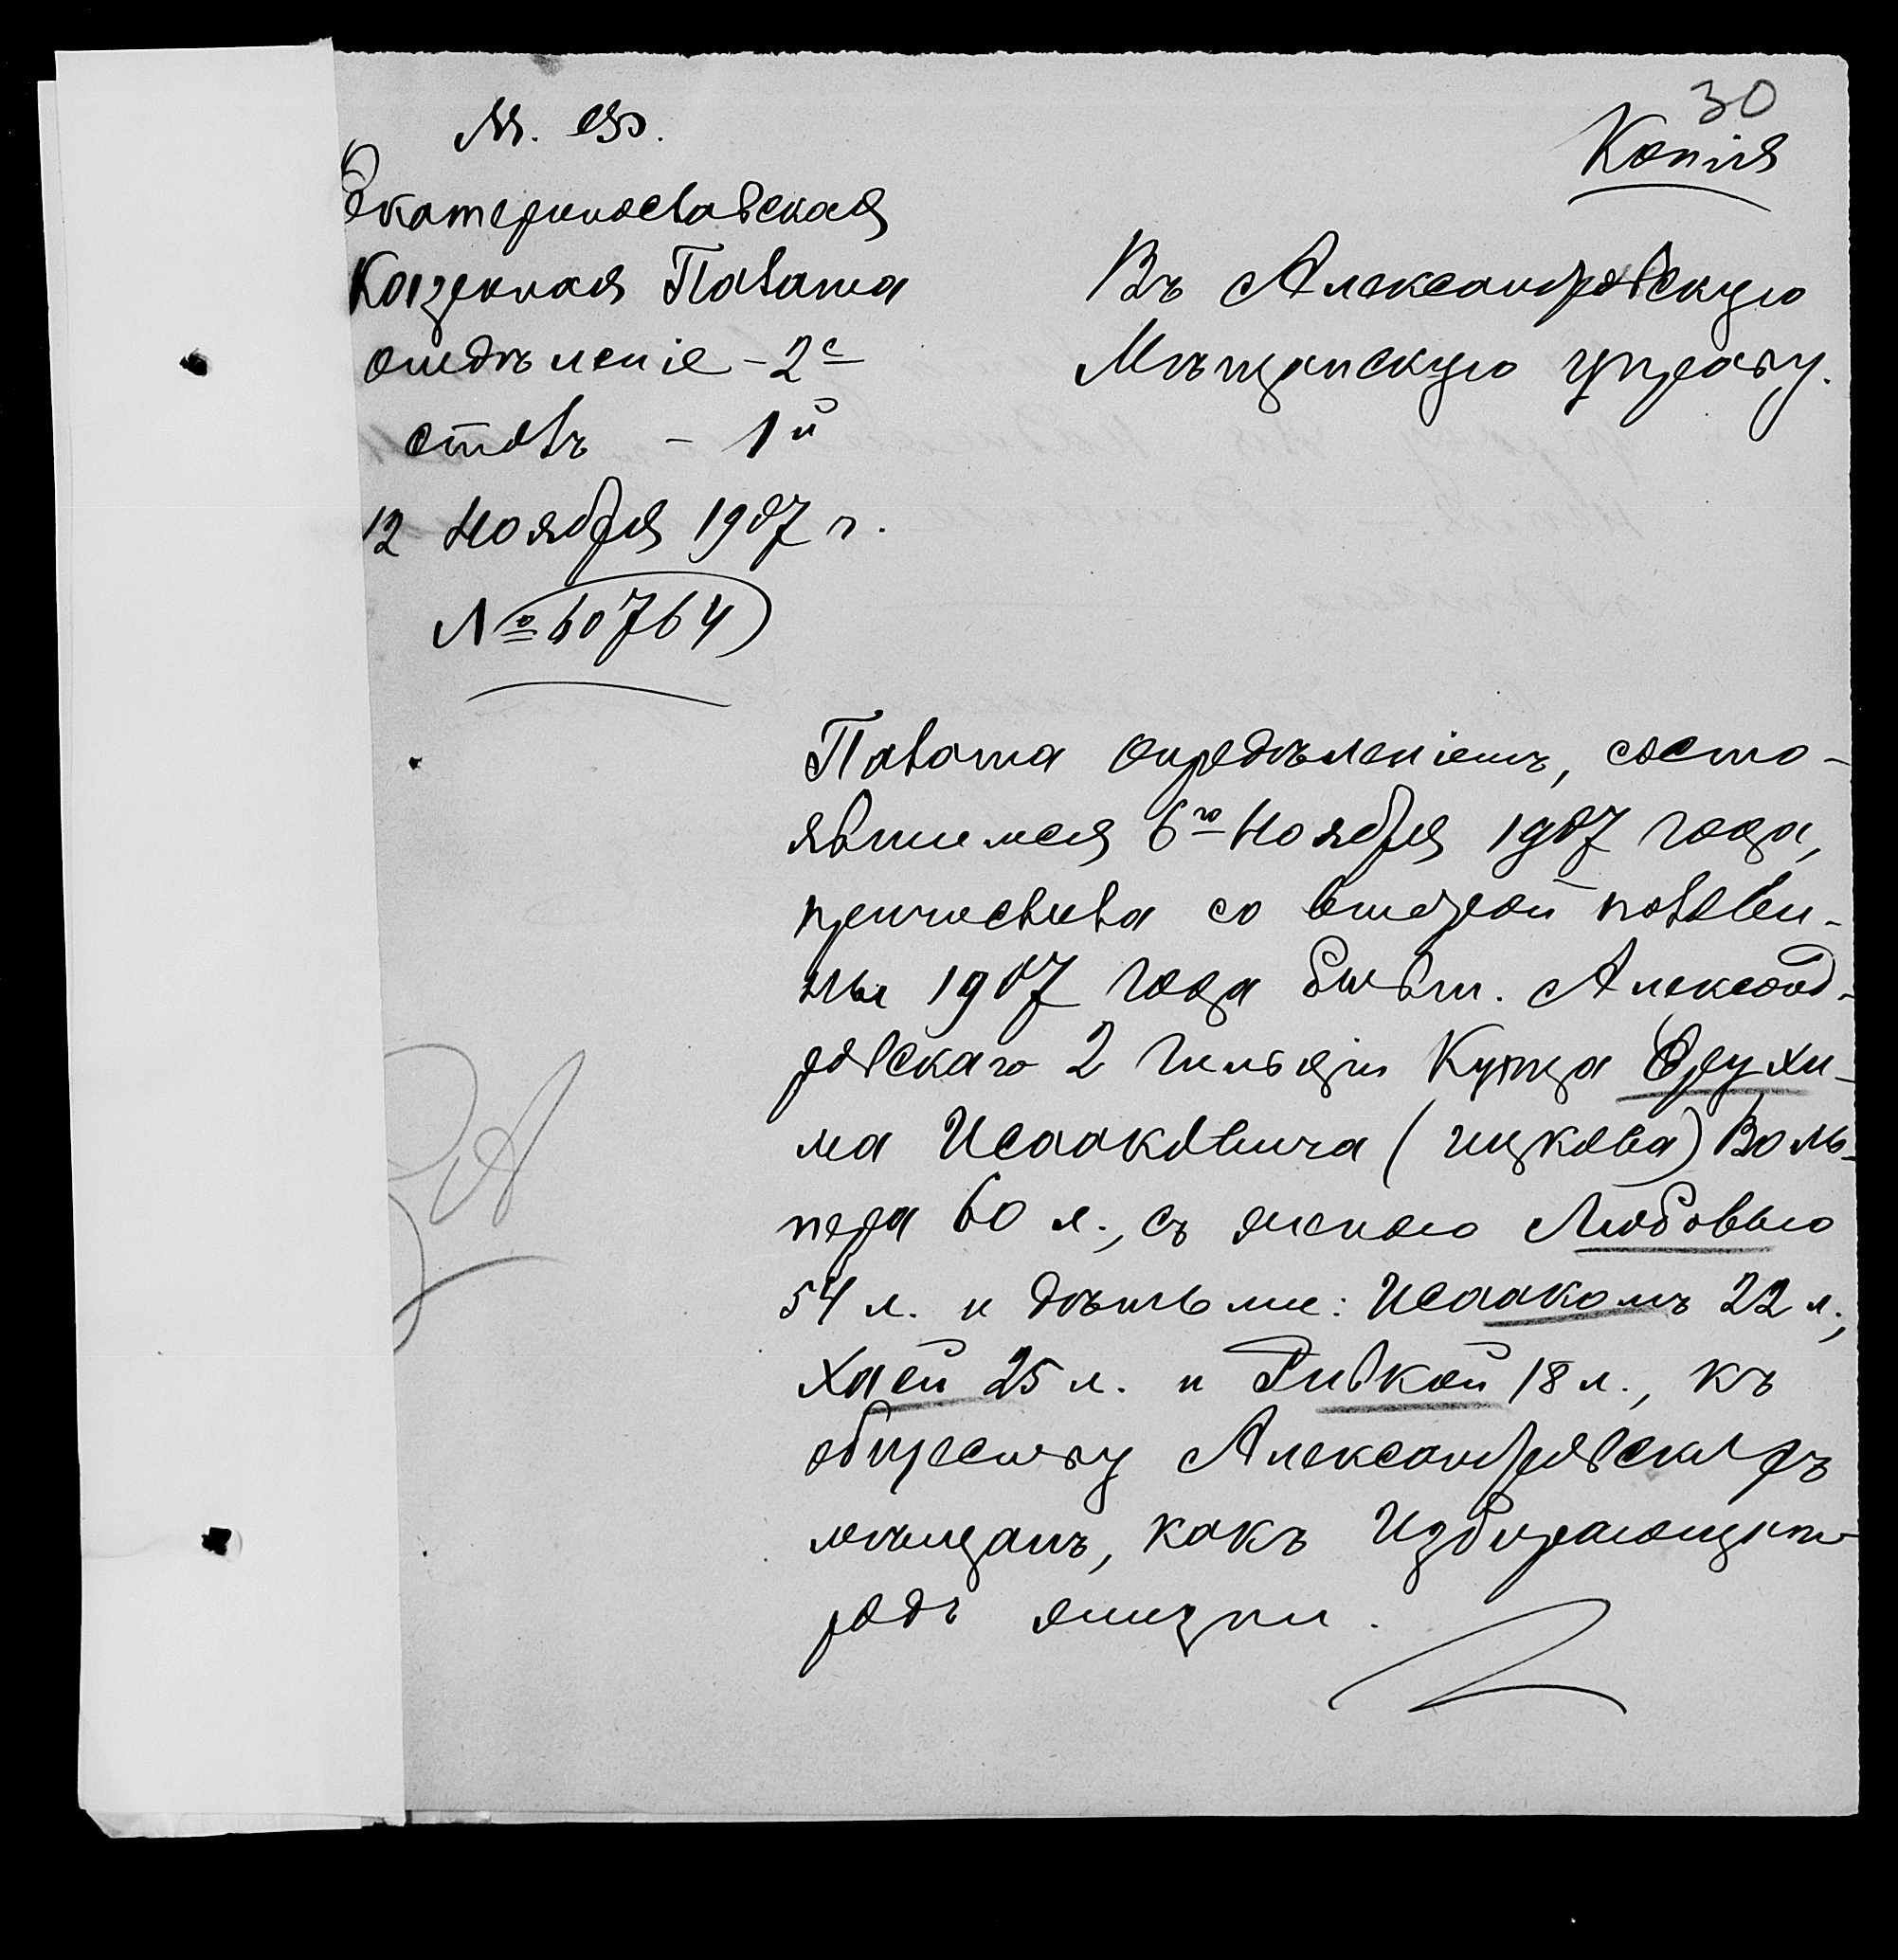 30
Копія
М. Ф.
Екатеринославская
Казенная Палата
отдѣленіе – 2е
столъ – 1й
12 Ноября 1907 г.
№ 60764
Въ Александровскую
Мѣщанскую управу.
Палата опредѣленіемъ, состо-
явшимся 6го Ноября 1907 года,
причислила со второй полови-
ны 1907 года бывш. Александ-
ровскаго 2 гильдіи Купца Фрухи-
ма Исааковича (Ицкова) Воль-
пера 60 л., съ женою Любовью
54 л. и дѣтьми: Исаакомъ 22 л.,
Хаей 25 л. и Ривкой 18 л., къ
обществу Александровскихъ
мѣщанъ, какъ избирающихъ
родъ жизни.